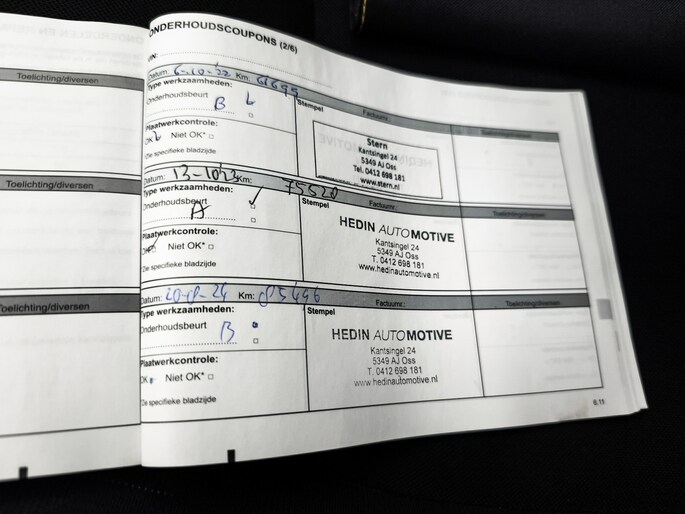 Toelichting/diversen
Toelichting/diversen
Toelichting/diversen
ONDERHOUDSCOUPONS (2/6)
VIN:
Datum: 6-10-'22 Km: 61699
Type werkzaamheden:
Onderhoudsbeurt
B
Plaatwerkcontrole:
OK Niet OK*
*Zie specifieke bladzijde
Stempel
Factuurnr.:
Toelichting/diversen
Stern
Kantsingel 24
5349 AJ Oss
Tel. 0412 698 181
www.stern.nl
Datum: 13-10'23 Km: 75520
Type werkzaamheden:
Onderhoudsbeurt
A
Plaatwerkcontrole:
OK Niet OK*
*Zie specifieke bladzijde
Stempel
Factuurnr.:
Toelichting/diversen
HEDIN AUTOMOTIVE
Kantsingel 24
5349 AJ Oss
T. 0412 698 181
www.hedinautomotive.nl
Datum: 20-8-24 Km: 85496
Type werkzaamheden:
Onderhoudsbeurt
B
Plaatwerkcontrole:
OK Niet OK*
*Zie specifieke bladzijde
Stempel
Factuurnr.:
Toelichting/diversen
HEDIN AUTOMOTIVE
Kantsingel 24
5349 AJ Oss
T. 0412 698 181
www.hedinautomotive.nl
6.11